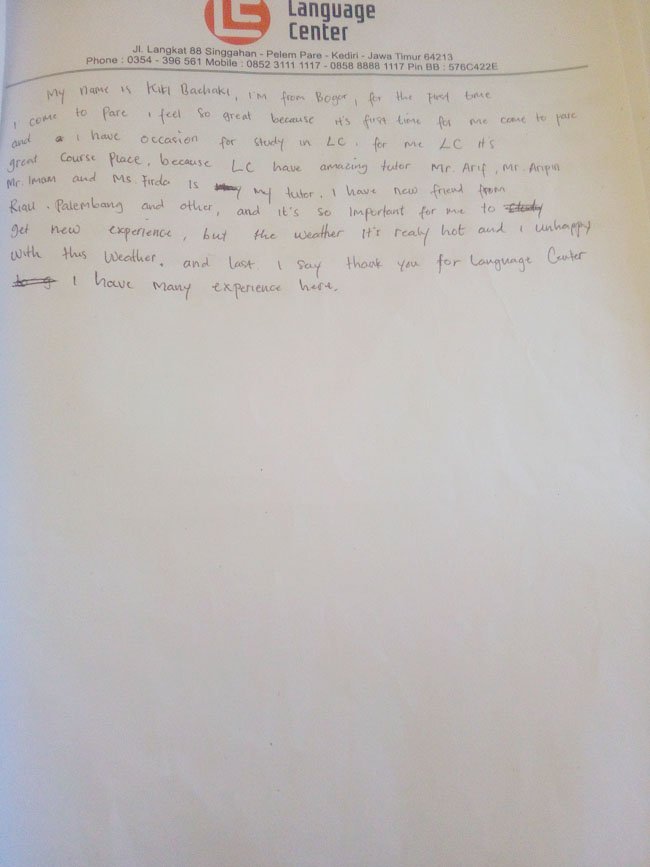 LC
Language
Center
Jl. Langkat 88 Singgahan - Pelem Pare - Kediri - Jawa Timur 64213
Phone : 0354 - 396 561 Mobile : 0852 3111 1117 - 0858 8888 1117 Pin BB : 576C422E
My name is Kiki Bachaki, I'm from Bogor, for the first time
I come to Pare I feel so great because it's first time for me come to pare
and I have occasion for study in LC, for me LC it's
great Course Place, because LC have amazing tutor Mr. Arif, Mr. Aripin
Mr. Imam and Ms. Firda is my tutor. I have new friend from
Riau. Palembang and other, and it's so important for me to
get new experience, but the weather it's realy hot and i unhappy
with this weather. and last I say thank you for Language Center
I have many experience here.